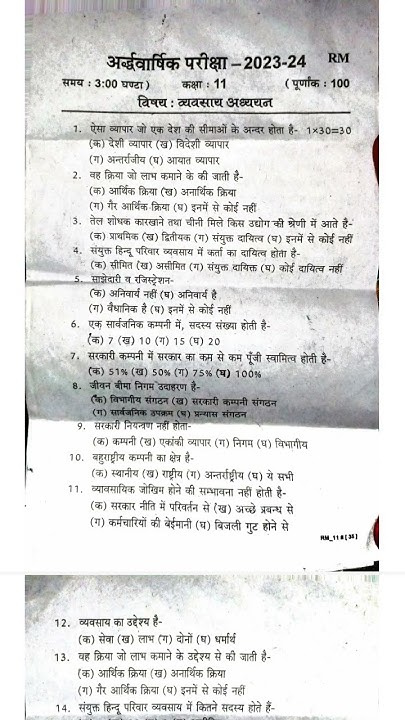 अर्द्धवार्षिक परीक्षा – 2023-24 RM
समय : 3:00 घण्टा ) कक्षा : 11 ( पूर्णांक : 100
विषय : व्यवसाय अध्ययन
1. ऐसा व्यापार जो एक देश की सीमाओं के अन्दर होता है- 1×30=30
(क) देशी व्यापार (ख) विदेशी व्यापार
(ग) अन्तर्राजीय (घ) आयात व्यापार
2. वह क्रिया जो लाभ कमाने के की जाती है-
(क) आर्थिक क्रिया (ख) अनार्थिक क्रिया
(ग) गैर आर्थिक क्रिया (घ) इनमें से कोई नहीं
3. तेल शोधक कारखाने तथा चीनी मिले किस उद्योग की श्रेणी में आते है-
(क) प्राथमिक (ख) द्वितीयक (ग) संयुक्त दायित्व (घ) इनमें से कोई नहीं
4. संयुक्त हिन्दू परिवार व्यवसाय में कर्ता का दायित्व होता है-
(क) सीमित (ख) असीमित (ग) संयुक्त दायित्त (घ) कोई दायित्व नहीं
5. साझेदारी व रजिस्ट्रेशन-
(क) अनिवार्य नहीं (घ) अनिवार्य है
(ग) वैधानिक है (घ) इनमें से कोई नहीं
6. एक सार्वजनिक कम्पनी में, सदस्य संख्या होती है-
(क) 7 (ख) 10 (ग) 15 (घ) 20
7. सरकारी कम्पनी में सरकार का कम से कम पूँजी स्वामित्व होती है-
(क) 51% (ख) 50% (ग) 75% (घ) 100%
8. जीवन बीमा निगम उदाहरण है-
(क) विभागीय संगठन (ख) सरकारी कम्पनी संगठन
(ग) सार्वजनिक उपक्रम (घ) प्रन्यास संगठन
9. सरकारी नियन्त्रण नहीं होता-
(क) कम्पनी (ख) एकांकी व्यापार (ग) निगम (घ) विभागीय
10. बहुराष्ट्रीय कम्पनी का क्षेत्र है-
(क) स्थानीय (ख) राष्ट्रीय (ग) अन्तर्राष्ट्रीय (घ) ये सभी
11. व्यावसायिक जोखिम होने की सम्भावना नहीं होती है-
(क) सरकार नीति में परिवर्तन से (ख) अच्छे प्रबन्ध से
(ग) कर्मचारियों की बेईमानी (घ) बिजली गुट होने से
RM_11
12. व्यवसाय का उद्देश्य है-
(क) सेवा (ख) लाभ (ग) दोनों (घ) धमार्थ
13. वह क्रिया जो लाभ कमाने के उद्देश्य से की जाती है-
(क) आर्थिक क्रिया (ख) अनार्थिक क्रिया
(ग) गैर आर्थिक क्रिया (घ) इनमें से कोई नहीं
14. संयुक्त हिन्दू परिवार व्यवसाय में कितने सदस्य होते हैं-